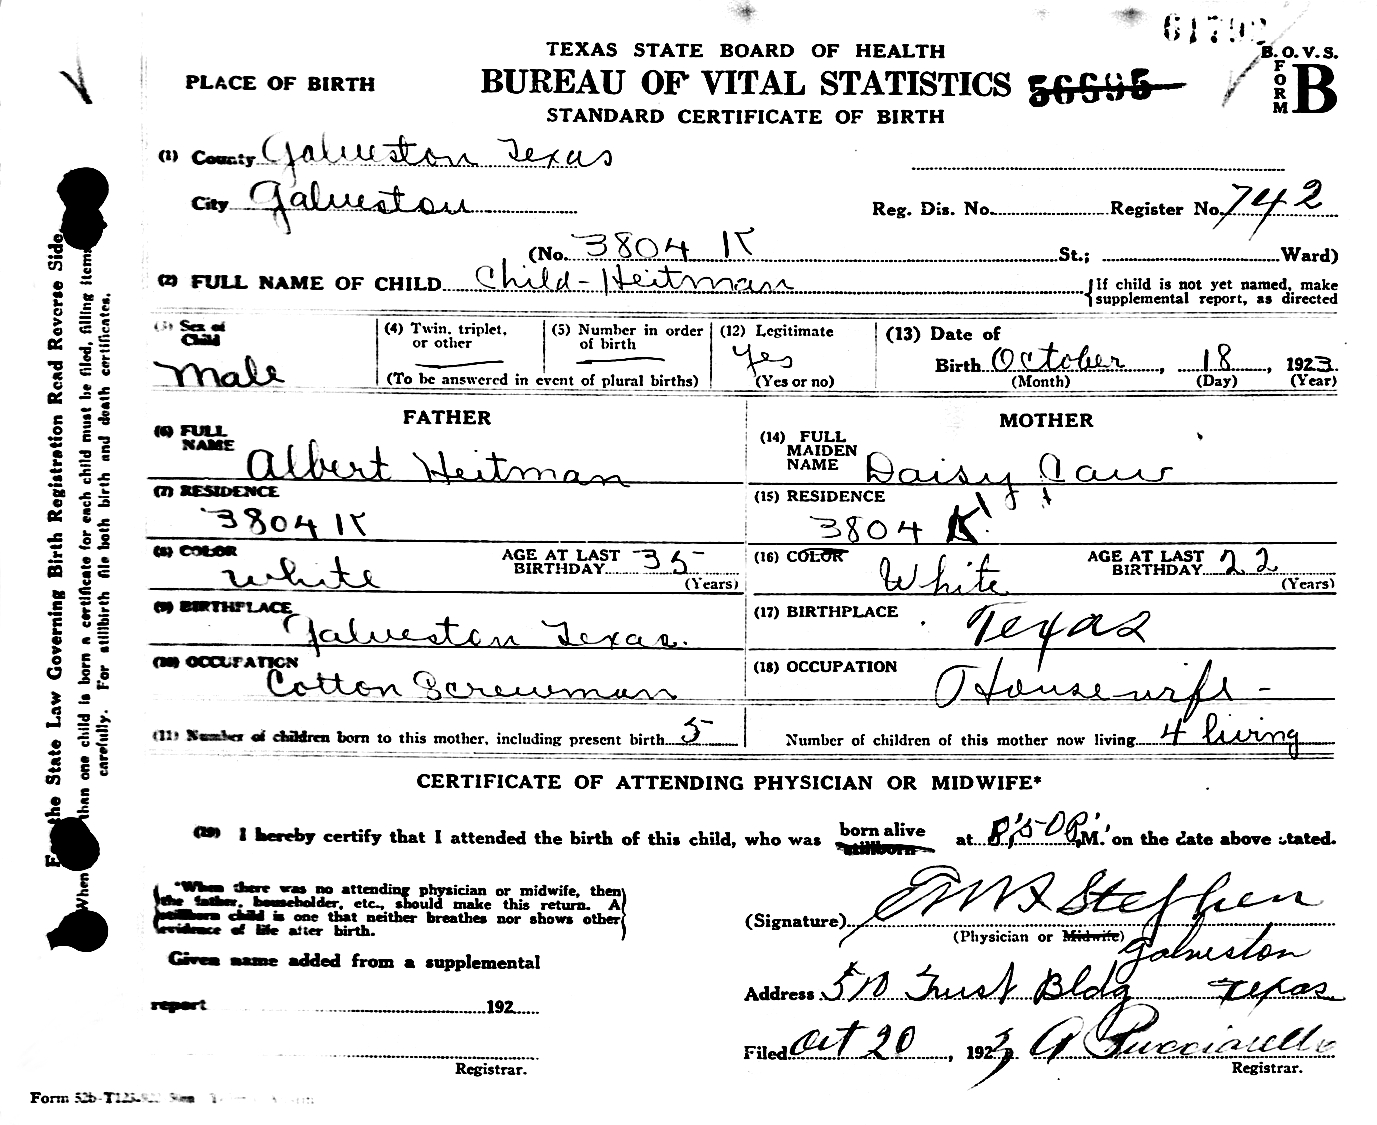 6179
TEXAS STATE BOARD OF HEALTH
B. O. V. S.
PLACE OF BIRTH
BUREAU OF VITAL STATISTICS 56695
FORM B
STANDARD CERTIFICATE OF BIRTH
(1) County Galveston Texas
City Galveston
Reg. Dis. No. Register No. 742
(No. 3804 K St.; Ward)
(2) FULL NAME OF CHILD Child-Heitman
If child is not yet named, make
supplemental report, as directed
(3) Sex of
Child
Male
(4) Twin, triplet,
or other
(5) Number in order
of birth
(To be answered in event of plural births)
(12) Legitimate
Yes
(Yes or no)
(13) Date of
Birth October, 18, 1923
(Month) (Day) (Year)
FATHER
(6) FULL
NAME
Albert Heitman
(7) RESIDENCE
3804 K
(8) COLOR
White
AGE AT LAST
BIRTHDAY 35
(Years)
(9) BIRTHPLACE
Galveston Texas.
(10) OCCUPATION
Cotton Screwman
(11) Number of children born to this mother, including present birth 5
MOTHER
(14) FULL
MAIDEN
NAME
Daisy
(15) RESIDENCE
3804 K
(16) COLOR
White
AGE AT LAST
BIRTHDAY 22
(Years)
(17) BIRTHPLACE
Texas
(18) OCCUPATION
Housewife -
Number of children of this mother now living 4 living
CERTIFICATE OF ATTENDING PHYSICIAN OR MIDWIFE*
(19) I hereby certify that I attended the birth of this child, who was born alive
stillborn
at M. on the date above stated.
*When there was no attending physician or midwife, then
the father, householder, etc., should make this return. A
stillborn child is one that neither breathes nor shows other
evidence of life after birth.
(Signature) Stephen
(Physician or Midwife)
Galveston
Given name added from a supplemental
Address 510 Trust Bldg Texas
report 192
Filed Oct 20, 1923 A Pucciarello
Registrar.
Registrar.
Form 52b-T123
the State Law Governing Birth Registration Read Reverse Side.
When than one child is born a certificate for each child must be filed, filling items
carefully. For stillbirth file both birth and death certificates.